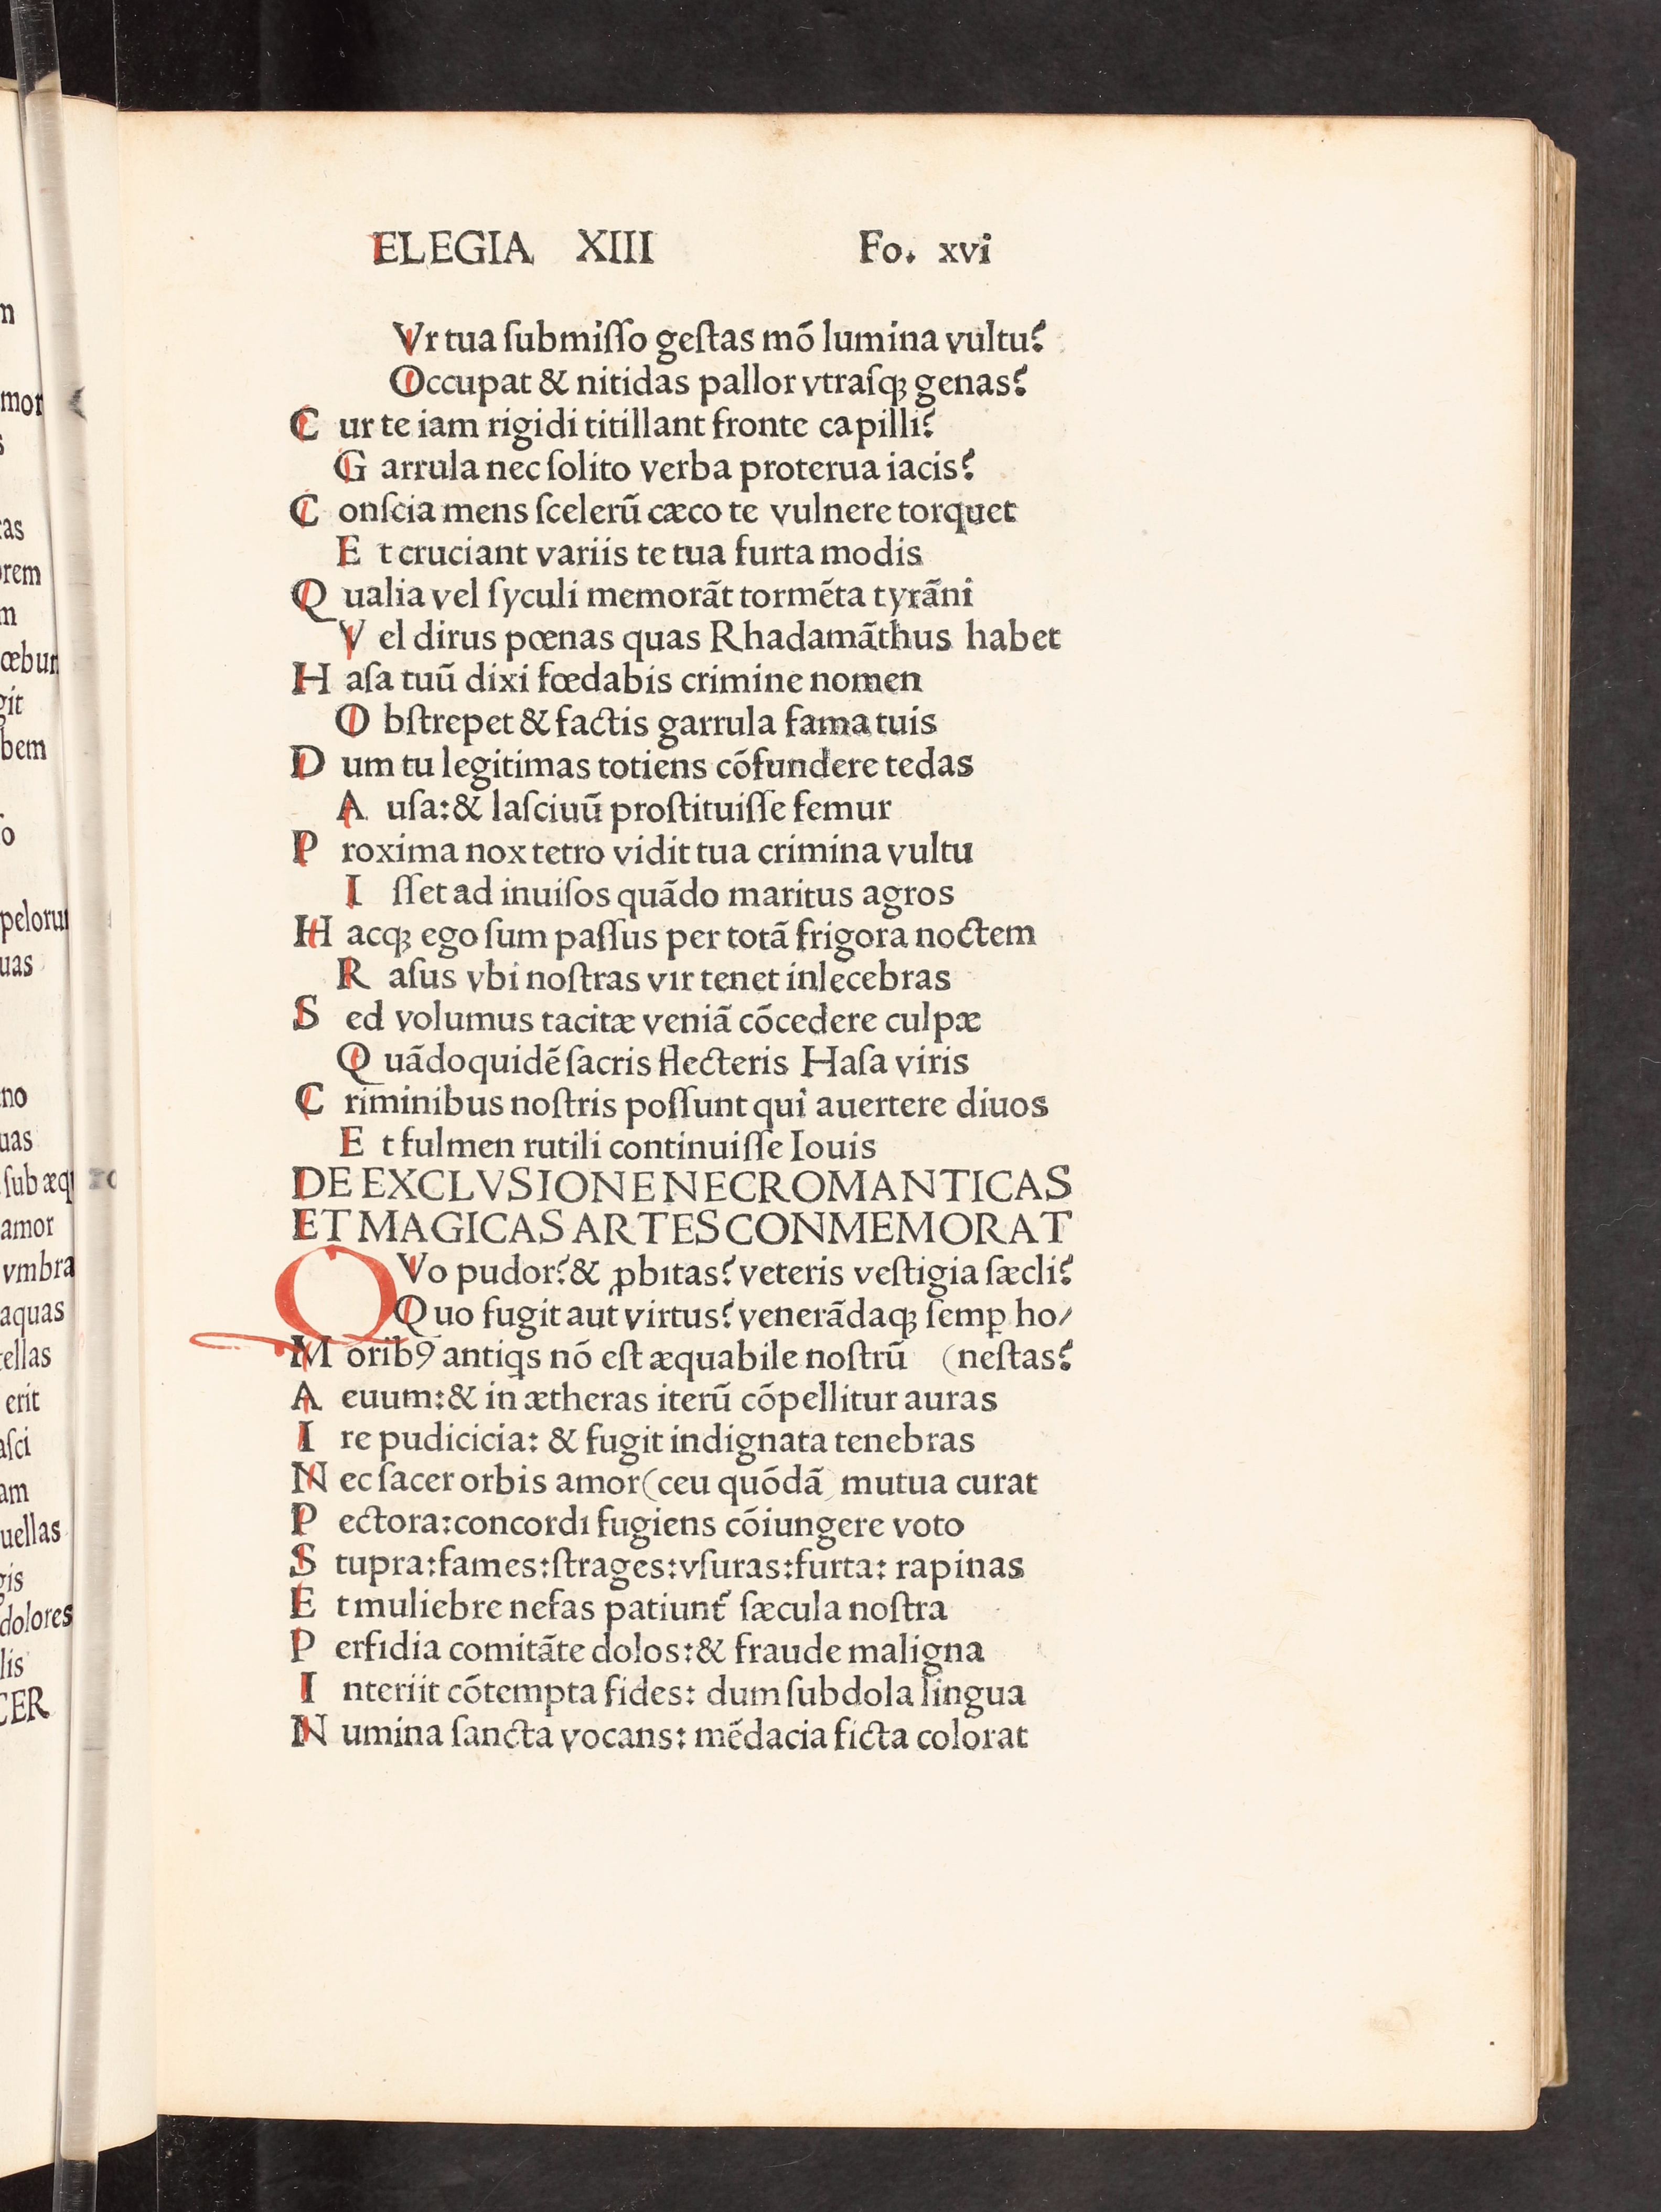 ELEGIA XIII Fo. xvi
Vr tua ſubmiſſo geſtas mō lumina vultu?
Occupat & nitidas pallor vtraſqꝫ genas?
C ur te iam rigidi titillant fronte capilli?
G arrula nec ſolito verba proterua iacis?
C onſcia mens ſcelerū cæco te vulnere torquet
E t cruciant variis te tua furta modis
Q ualia vel ſyculi memorāt tormēta tyrāni
V el dirus pœnas quas Rhadamāthus habet
H aſa tuū dixi fœdabis crimine nomen
O bſtrepet & factis garrula fama tuis
D um tu legitimas totiens cōfundere tedas
A uſa: & laſciuū proſtituiſſe femur
P roxima nox tetro vidit tua crimina vultu
I ſſet ad inuiſos quādo maritus agros
H acqꝫ ego ſum paſſus per totā frigora noctem
R aſus vbi noſtras vir tenet inlecebras
S ed volumus tacitæ veniā cōcedere culpæ
Q uādoquidē ſacris flecteris Haſa viris
C riminibus noſtris poſſunt qui auertere diuos
E t fulmen rutili continuiſſe Iouis
DE EXCLVSIONE NECROMANTICAS
ET MAGICAS ARTES CONMEMORAT
QVo pudor? & ꝓbitas? veteris veſtigia ſæcli?
Quo fugit aut virtus? venerādaqꝫ ſemꝑ ho/
M oribꝰ antiꝗs nō eſt æquabile noſtrū (neſtas?
A euum: & in ætheras iterū cōpellitur auras
I re pudicicia: & fugit indignata tenebras
N ec ſacer orbis amor (ceu quōdā) mutua curat
P ectora: concordi fugiens cōiungere voto
S tupra: fames: ſtrages: vſuras: furta: rapinas
E t muliebre nefas patiunt᷑ ſæcula noſtra
P erfidia comitāte dolos: & fraude maligna
I nteriit cōtempta fides: dum ſubdola lingua
N umina ſancta vocans: mēdacia ficta colorat